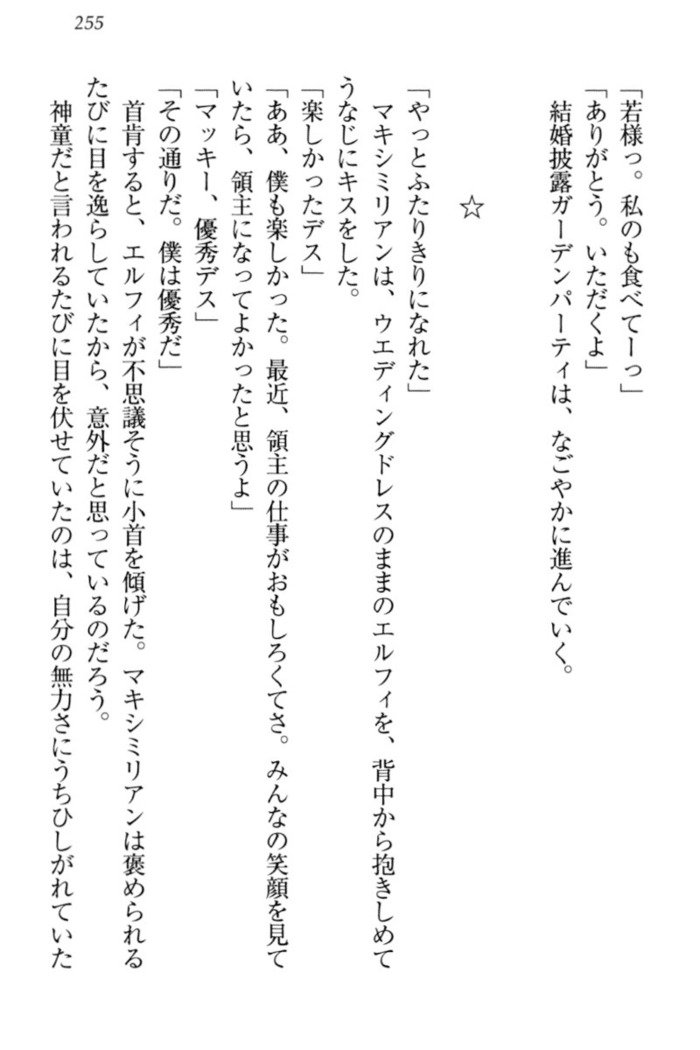 255
「若様っ。私のも食べてーっ」
「ありがとう。いただくよ」
結婚披露ガーデンパーティは、なごやかに進んでいく。
☆
「やっとふたりきりになれた」
マキシミリアンは、ウエディングドレスのままのエルフィを、背中から抱きしめて
うなじにキスをした。
「楽しかったデス」
「ああ、僕も楽しかった。最近、領主の仕事がおもしろくてさ。みんなの笑顔を見て
いたら、領主になってよかったと思うよ」
「マッキー、優秀デス」
「その通りだ。僕は優秀だ」
首肯すると、エルフィが不思議そうに小首を傾げた。マキシミリアンは褒められる
たびに目を逸らしていたから、意外だと思っているのだろう。
神童だと言われるたびに目を伏せていたのは、自分の無力さにうちひしがれていた